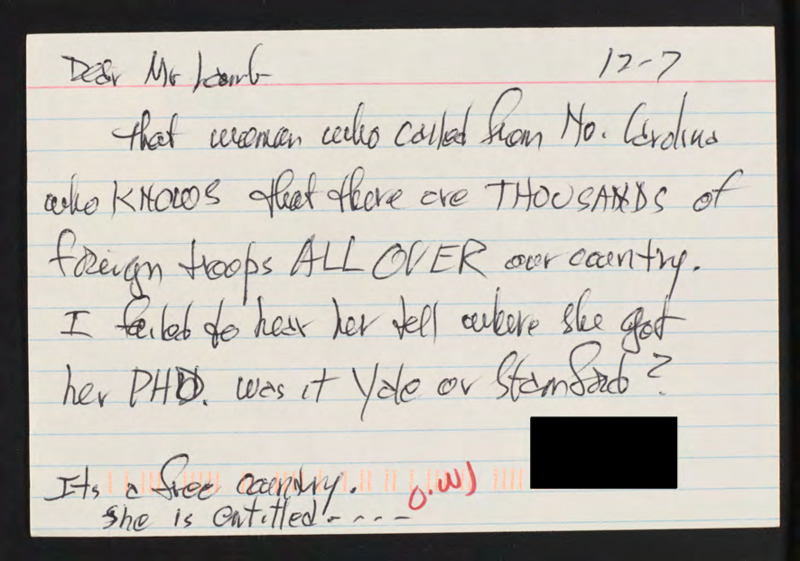 Dear Mr Lamb
12-7
that woman who called from No. Carolina
who KNOWS that there are THOUSANDS of
foreign troops ALL OVER our country.
I failed to hear her tell where she got
her PHD. was it Yale or Stamford?
Its a free country.
She is entitled - - - -